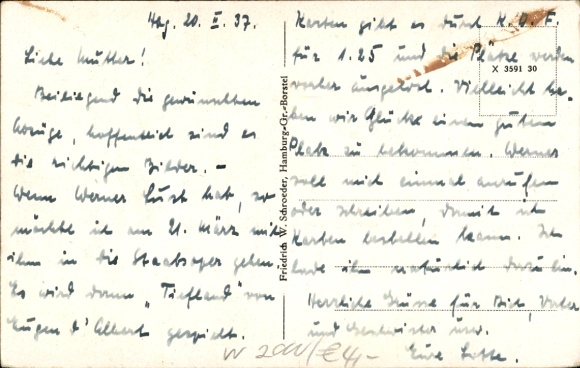 Hbg. 20. II. 37.
Liebe Mutter!
Beiliegend die gewünschten
Abzüge, hoffentlich sind es
die richtigen Bilder. –
Wenn Werner Lust hat, so
möchte ich am 21. März mit
ihm in die Staatsoper gehen.
Es wird dann „Tiefland" von
Eugen d'Albert gespielt.
Friedrich W. Schroeder, Hamburg-Gr.-Borstel
Karten gibt es durch K.D.F.
für 1.25 und die Plätze werden
vorher ausgelost. Vielleicht ha-
ben wir Glück einen guten
Platz zu bekommen. Werner
soll mich einmal anrufen
oder schreiben, damit ich
Karten bestellen kann. Ich
lade ihn natürlich dazu ein.
Herzliche Grüsse für Dich, Vater
und Geschwister usw.
Eure Lotte.
X 3591 30
€4,-